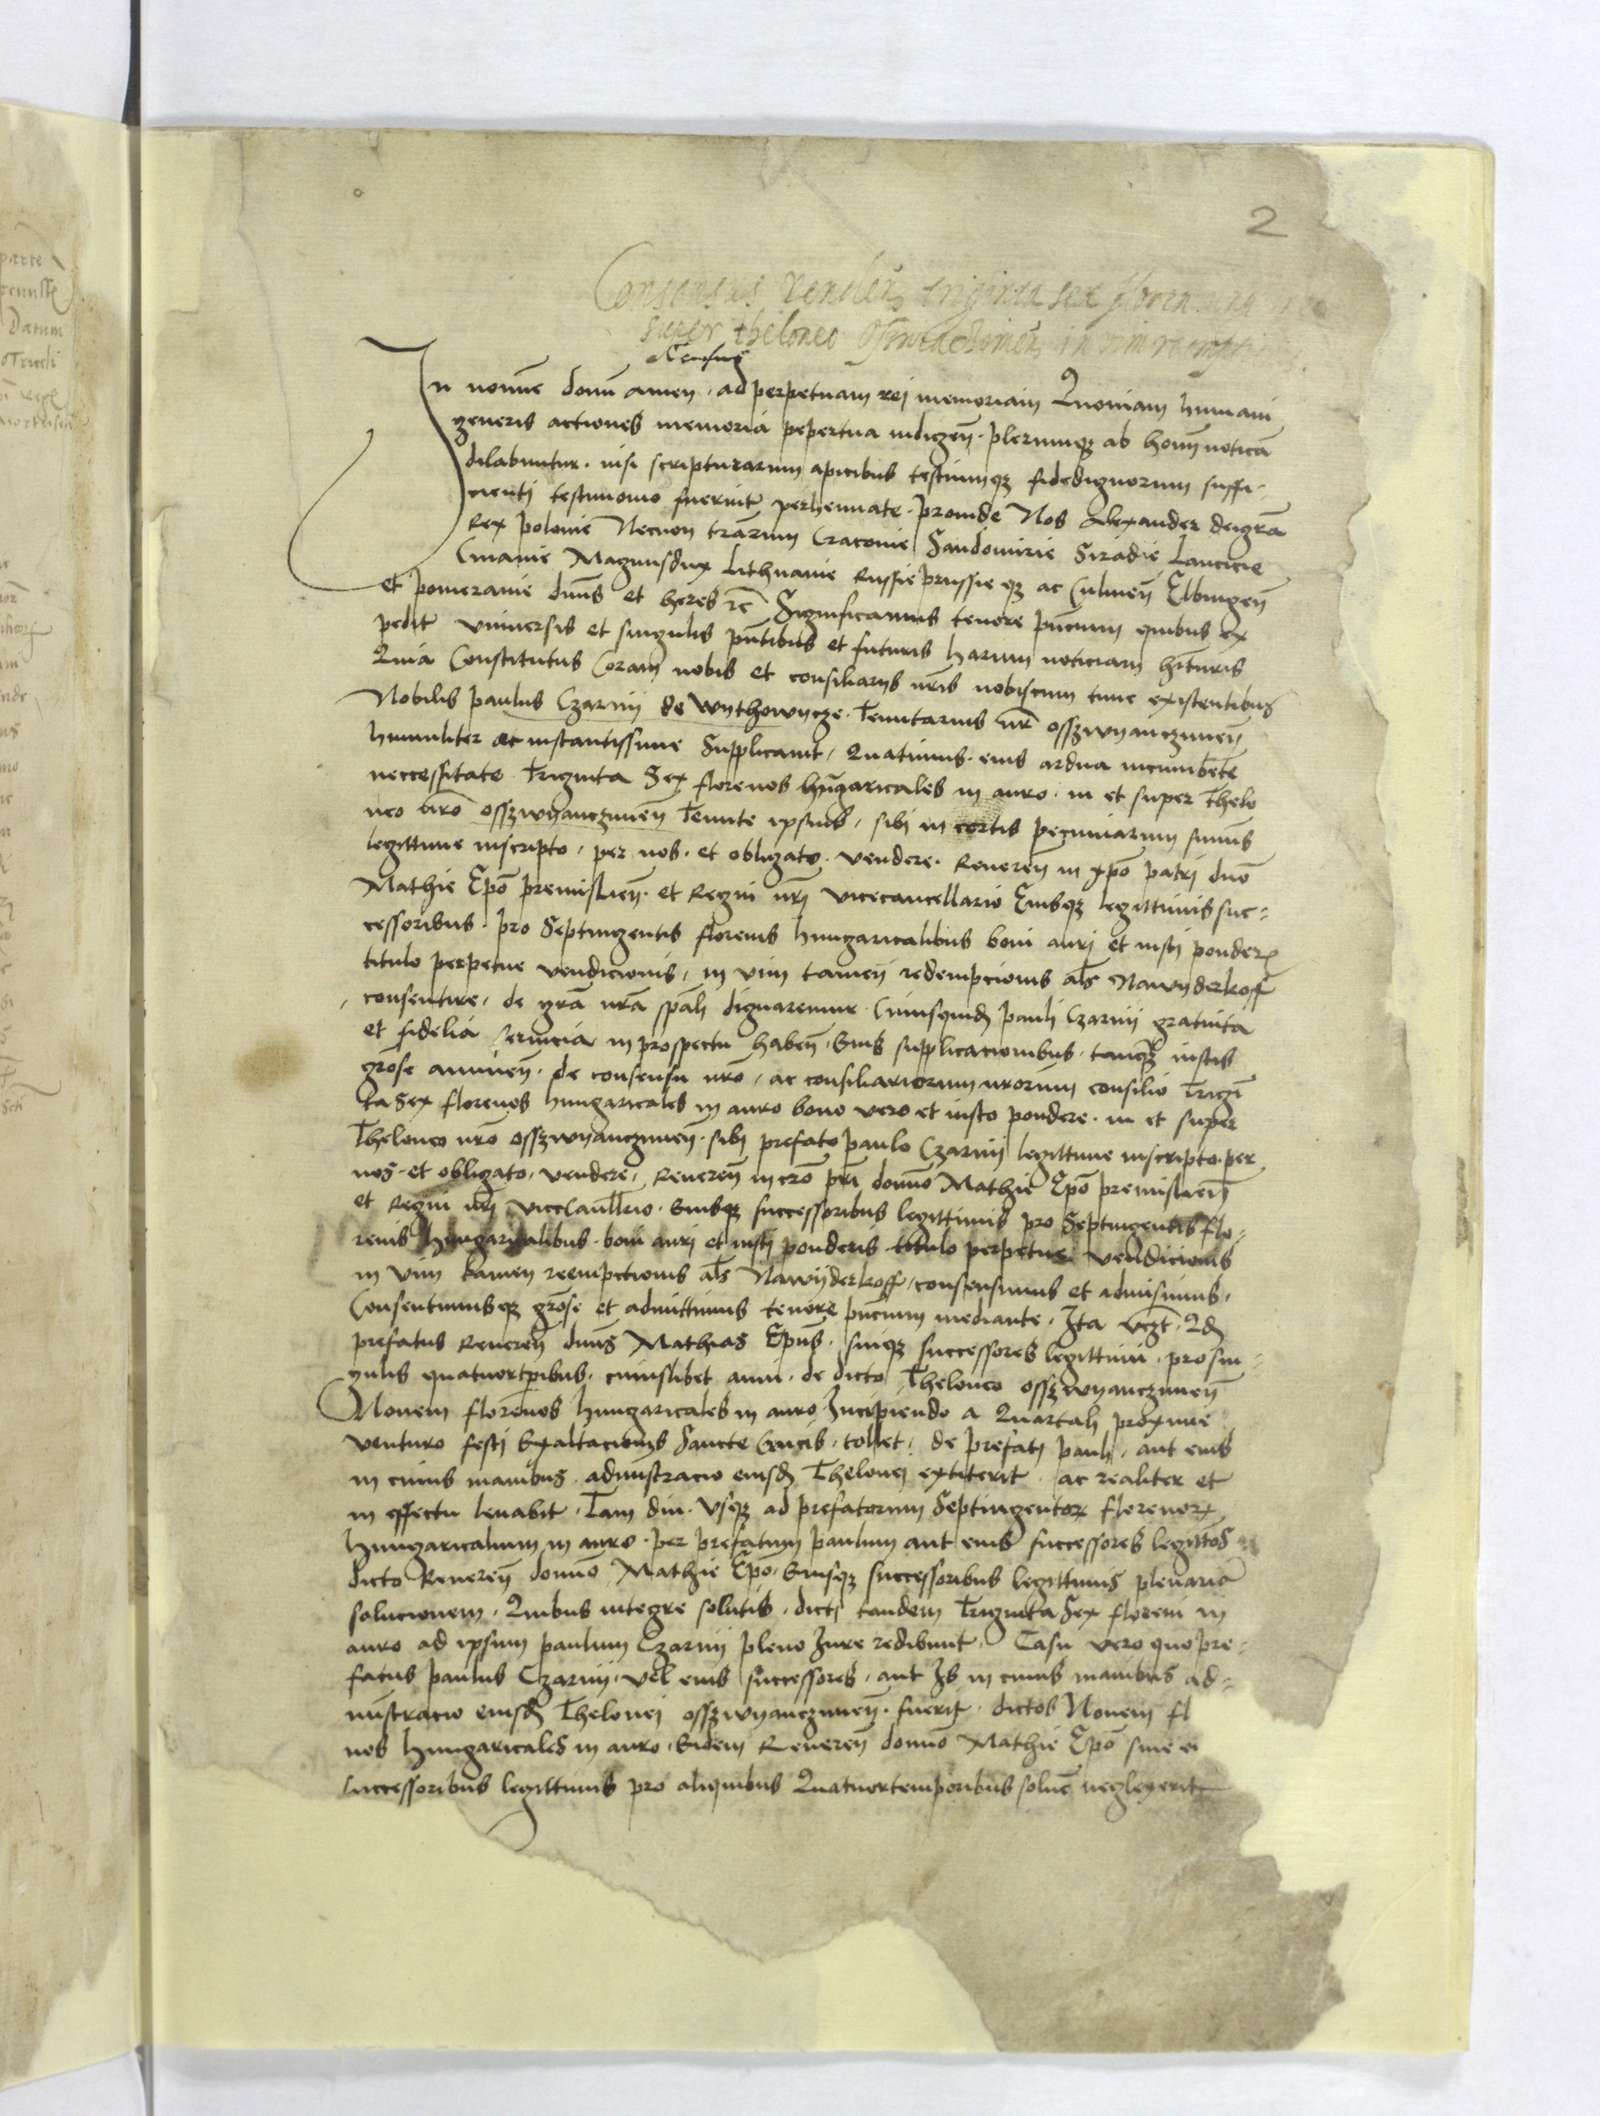 2
Consensus venden triginta sex floren
super theloneo Oswanczimen in vim reempti
Census
In nomine domi amen. ad perpetuam rei memoriam Quoniam humani
generis actiones memoria pepertua indigen. plerumqz ab homi noticia
dilabuntur. nisi scripturarum apicibus testiumqz fidedignorum suffi-
cienti testimonio fuerint perhennate. proinde Nos Alexander dei gra
Rex polonie Necnon trarum Cracovie Sandomirie Siradie Lancicie
Cuiavie Magnusdux Lithuanie Russie prussie qz ac Culmen Elbingen
et pomeranie duns et heres rc Significamus tenore pncium quibus ex
pedit universis et singulis pntibus et futuris harum noticiam hituris
Quia Constitutus Coram nobis et consiliarys nris nobiscum tunc existentibus
Nobilis paulus Czarnij de Wythowycze. Tenutarius nr osszwyanczimen
humiliter ac instantissime Supplicavit, Quatinus. eius ardua incumbete
neccessitate Triginta Sex florenos hungaricales in auro. in et super Thelo
neo nro osszwyanczimen Tenute ipsius, sibi in certis pecuniarum sumis
legittime inscripto, per nos. et obligato. vendere. Reveren in xpo patri duo
Mathie Epo premislien. et Regni nri vicecancellario Eiusqz legittimis suc-
cessoribus. pro Septingentis florenis hungaricalibus boni auri et iusti ponder
titulo perpetue vendicionis, in vim tamen redempcionis als Nawyderkoff
consentire, de gra nra spali dignaremur. Cuiusquid pauli Czarnij gratuita
et fidelia servicia in prospectu haben. Eius supplicacionibus, tanqz iustis
grose annuen. de consensu nro, ac consiliariorum nrorum consilio Trigi
ta Sex florenos hungaricales in auro bono vero et iusto pondere. in et super
Theloneo nro osszwyanczimen. sibi prefato paulo Czarnij legittime inscripto. per
nos. et obligato, vendere, Reveren in cro pri domno Mathie Epo premislien
et Regni nri vicecanllrio. Eiusqz successoribus legittimis pro Septingentis flo-
renis hungaricalibus. boni auri et iusti ponderis. titulo perpetue vendicionis
in vim tamen reempctionis als Nawyderkoff, consensimus et admisimus,
Consentimusqz grose et admittimus tenore pncium mediante, Ita vczt. Qd
prefatus Reveren duns Mathias Epus, suiqz successores legittimi, pro sin-
gulis quatuortpibus, cuiuslibet anni, de dicto Theloneo osszwyanczimen
Novem florenos hungaricales in auro Incipiendo a Quartali proxime
venturo festi Exaltacionis Sancte Crucis, tollet, de prefati pauli, aut eius
in cuius manibus administracio eiusd Thelonei extiterit, ac realiter et
in effectu levabit, Tam diu. Usqz ad prefatorum Septingentor florenor
hungaricalium in auro. per prefatum paulum aut eius successores legittos
dicto Reveren domno Mathie Epo. Eiusqz successoribus legittimis plenaria
solucionem. Quibus integre solutis, dicti tandem Triginta Sex floreni in
auro ad ipsum paulum Czarnij pleno Jure redibunt, Casu vero quo pre-
fatus paulus Czarnij, vel eius successores, aut Is in cuius manibus ad-
nistracio eiusd Thelonei osszwyanczimen. fuerit, dictos Novem fl
nos hungaricales in auro, Eidem Reveren domno Mathie Epo sive ei
successoribus legittimis pro aliquibus Quatuortemporibus solve neglexerit